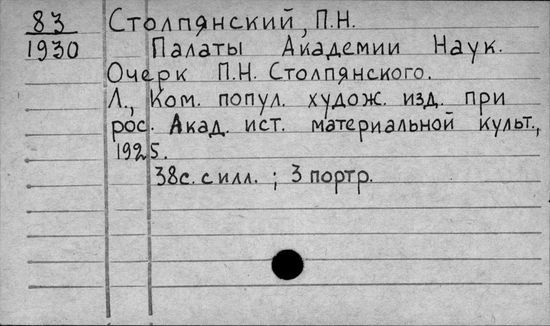 83 Столпянский, П.Н.
1930 Палаты Академии Наук.
Очерк П.Н. Столпянского.
Л., Ком. попул. худож. изд. при
рос. Акад. ист. материальной культ.,
1925.
38с. с илл. ; 3 портр.